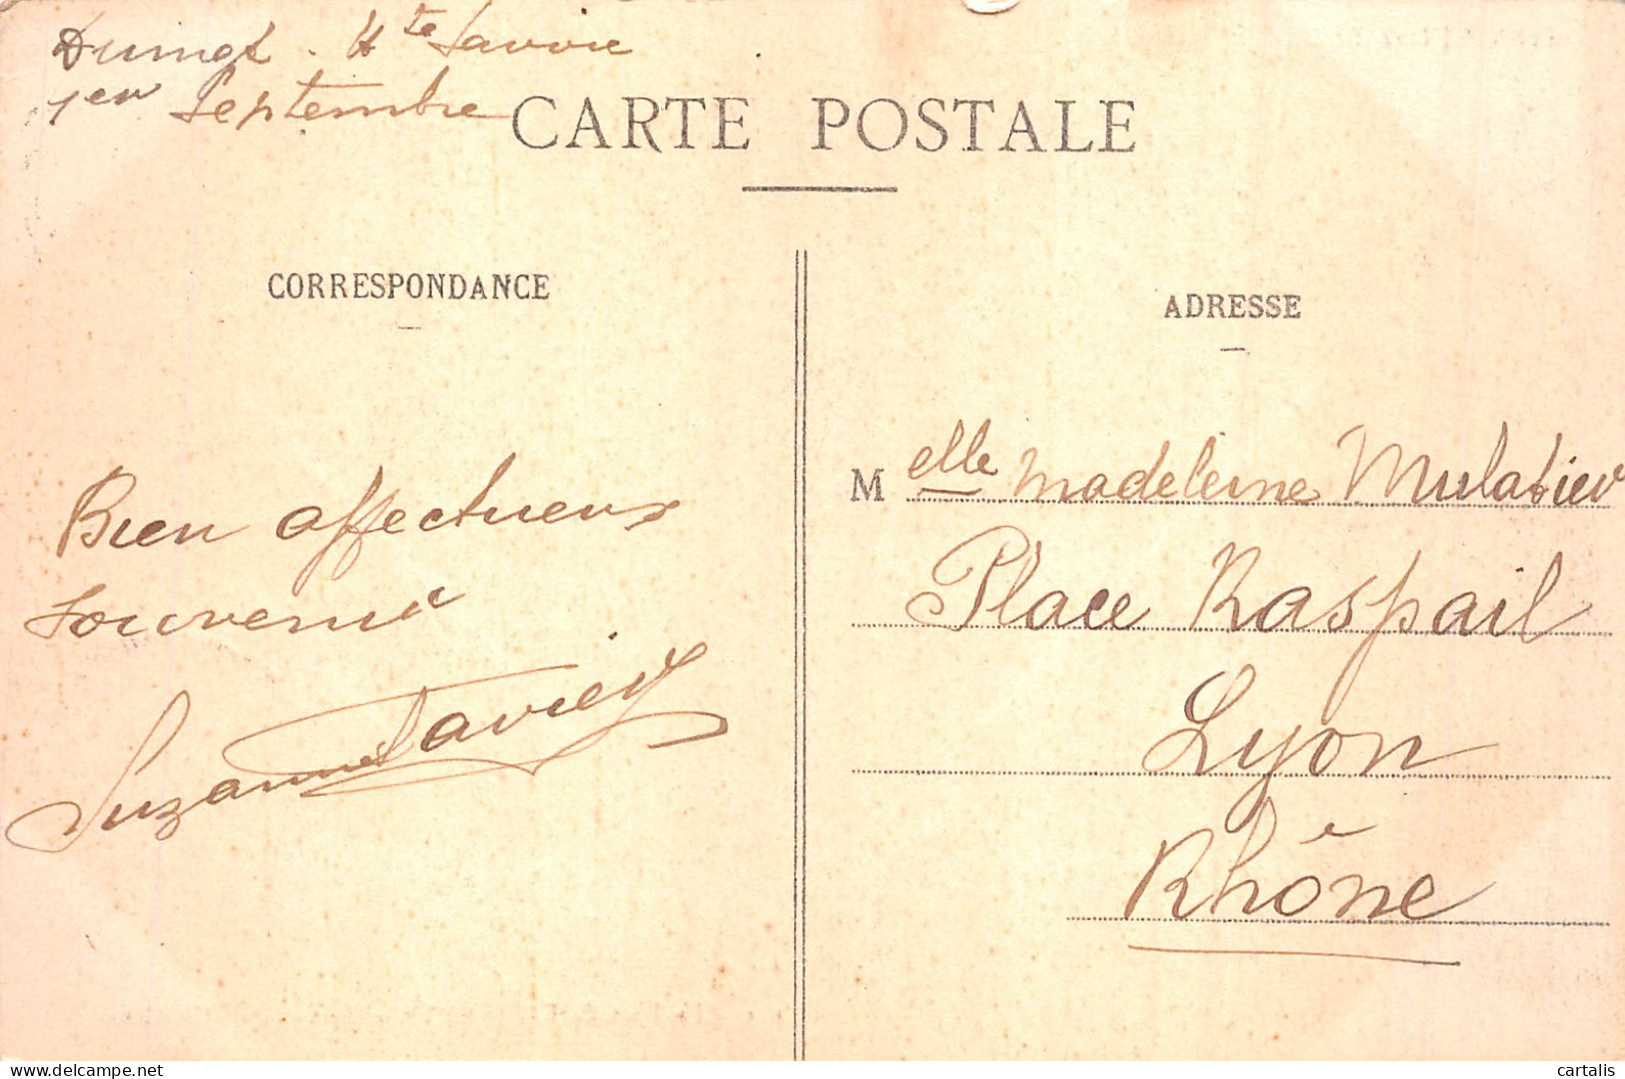 Duingt. Hte Savoie
1er Septembre
CARTE POSTALE
CORRESPONDANCE
Bien affectueux
souvenir
Suzanne
ADRESSE
Melle Madeleine Mulatier
Place Raspail
Lyon
Rhône
delcampe.net
cartalis